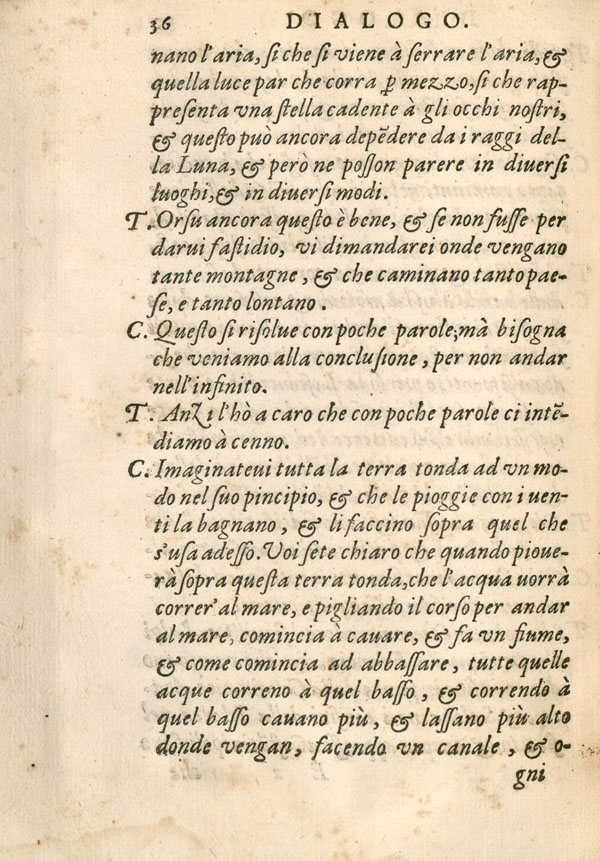 36 DIALOGO.
nano l'aria, ſi che ſi viene à ſerrare l'aria, &
quella luce par che corra ꝑ mezzo, ſi che rap-
preſenta vna ſtella cadente à gli occhi noſtri,
& queſto può ancora depēdere da i raggi del-
la Luna, & però ne poſſon parere in diuerſi
luoghi, & in diuerſi modi.
T. Orſu ancora queſto è bene, & ſe non fuſſe per
darui faſtidio, vi dimandarei onde vengano
tante montagne, & che caminano tanto pae-
ſe, e tanto lontano.
C. Queſto ſi riſolue con poche parole; mà biſogna
che veniamo alla concluſione, per non andar
nell'infinito.
T. Anzi l'hò a caro che con poche parole ci intē-
diamo à cenno.
C. Imaginateui tutta la terra tonda ad vn mo-
do nel ſuo pincipio, & che le pioggie con i uen-
ti la bagnano, & li faccino ſopra quel che
s'uſa adeſſo. Voi ſete chiaro che quando pioue-
rà ſopra queſta terra tonda, che l'acqua uorrà
correr' al mare, e pigliando il corſo per andar
al mare, comincia à cauare, & fa vn fiume,
& come comincia ad abbaſſare, tutte quelle
acque correno à quel baſſo, & correndo à
quel baſſo cauano più, & laſſano più alto
donde vengan, facendo vn canale, & o-
gni